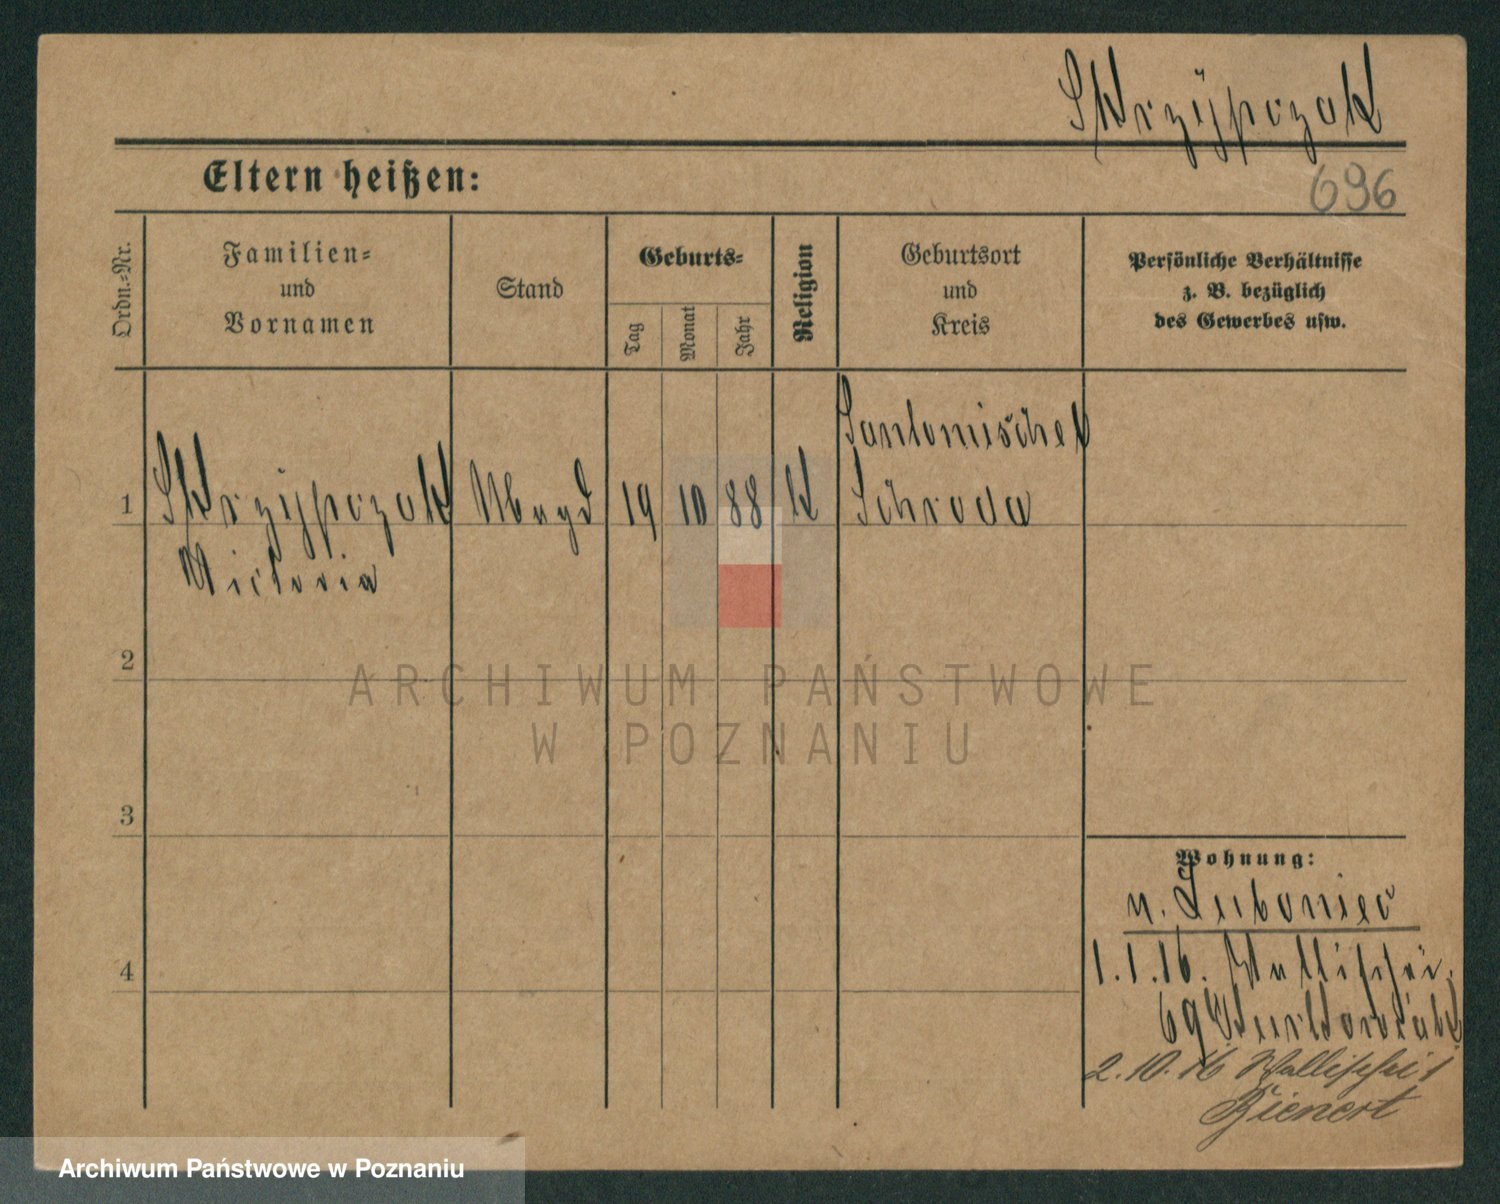 Skrzypczak
Eltern heißen:
696
Ordn.-Nr.
Familien-
und
Vornamen
Stand
Geburts-
Tag
Monat
Jahr
Religion
Geburtsort
und
Kreis
Persönliche Verhältnisse
z. B. bezüglich
des Gewerbes usw.
Santomischel
1 Skrzypczak Magd 19 10 88 K Schroda
Victoria
2
3
4
Wohnung:
n. Luboniec
1.1.16. Wallischei
69
2.10.16 Wallischei 1
Bienert
ARCHIWUM PAŃSTWOWE
W POZNANIU
Archiwum Państwowe w Poznaniu